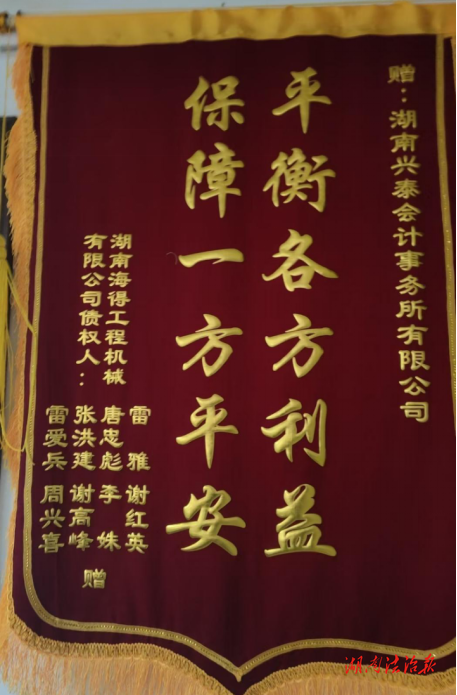 赠：湖南兴泰会计事务所有限公司
平衡各方利益
保障一方平安
湖南海得工程机械
有限公司债权人：
雷雅 谢红英
唐忠彪 李姝
张洪建 谢高峰
雷爱兵 周兴喜
赠
湖南法治报